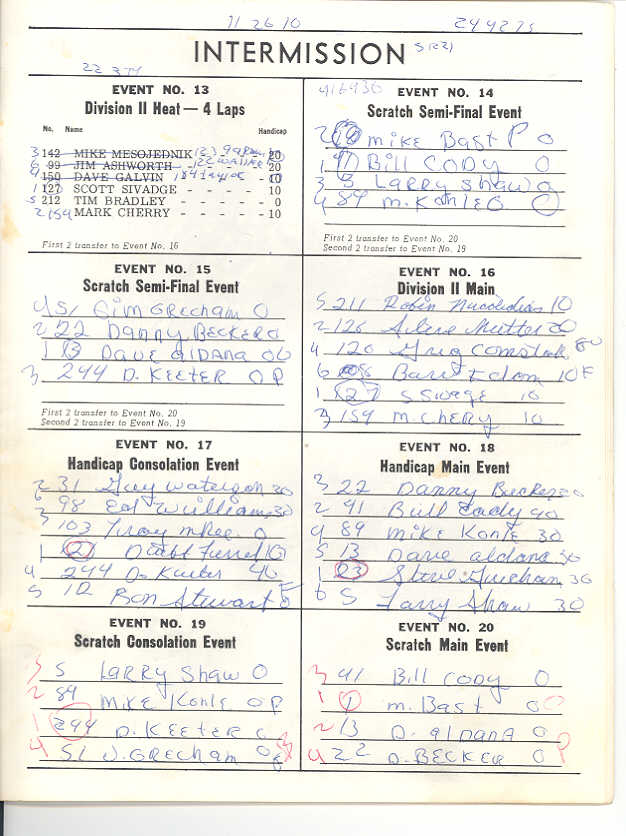 11 26 10 244275
INTERMISSION
EVENT NO. 13
Division II Heat — 4 Laps
No. Name Handicap
3 142 MIKE MESOJEDNIK 20
6 99 JIM ASHWORTH - 20
4 150 DAVE GALVIN - 10
1 127 SCOTT SIVADGE - - - - - 10
5 212 TIM BRADLEY - - - - - 0
2 159 MARK CHERRY - - - - - 10
First 2 transfer to Event No. 16
EVENT NO. 14
416930
Scratch Semi-Final Event
2 MIKE BAST P 0
1 Bill CODY 0
3 5 LARRY SHAW 0
4 84 M. KONLE 0
First 2 transfer to Event No. 20
Second 2 transfer to Event No. 19
EVENT NO. 15
Scratch Semi-Final Event
4 51 GRECHAM 0
2 22 DANNY BECKER 0
1 13 DAVE ALDANA 0
3 244 D. KEETER 0 P
First 2 transfer to Event No. 20
Second 2 transfer to Event No. 19
EVENT NO. 16
Division II Main
5 211 Robin 10
2 126 20
4 120 Greg Comstock
6 10 F
1 127 S 10
3 159 M. CHERY 10
EVENT NO. 17
Handicap Consolation Event
2 31 Guy 30
98 Ed Williams 30
3 103 0
1 10
4 244 D. 40
5 10 Ron Stewart
EVENT NO. 18
Handicap Main Event
3 22 Danny Becker
2 91 Bill Cody 40
4 84 Mike Konle 30
5 13 Dave Aldana 30
1 23 Steve 30
6 5 Larry Shaw 30
EVENT NO. 19
Scratch Consolation Event
3 5 LARRY SHAW 0
2 84 MIKE KONLE 0 P
1 244 D. KEETER 0
4 51 J. GRECHAM 0
EVENT NO. 20
Scratch Main Event
3 91 Bill CODY 0
1 M. BAST 0
2 13 D. ALDANA 0
4 22 D. BECKER 0